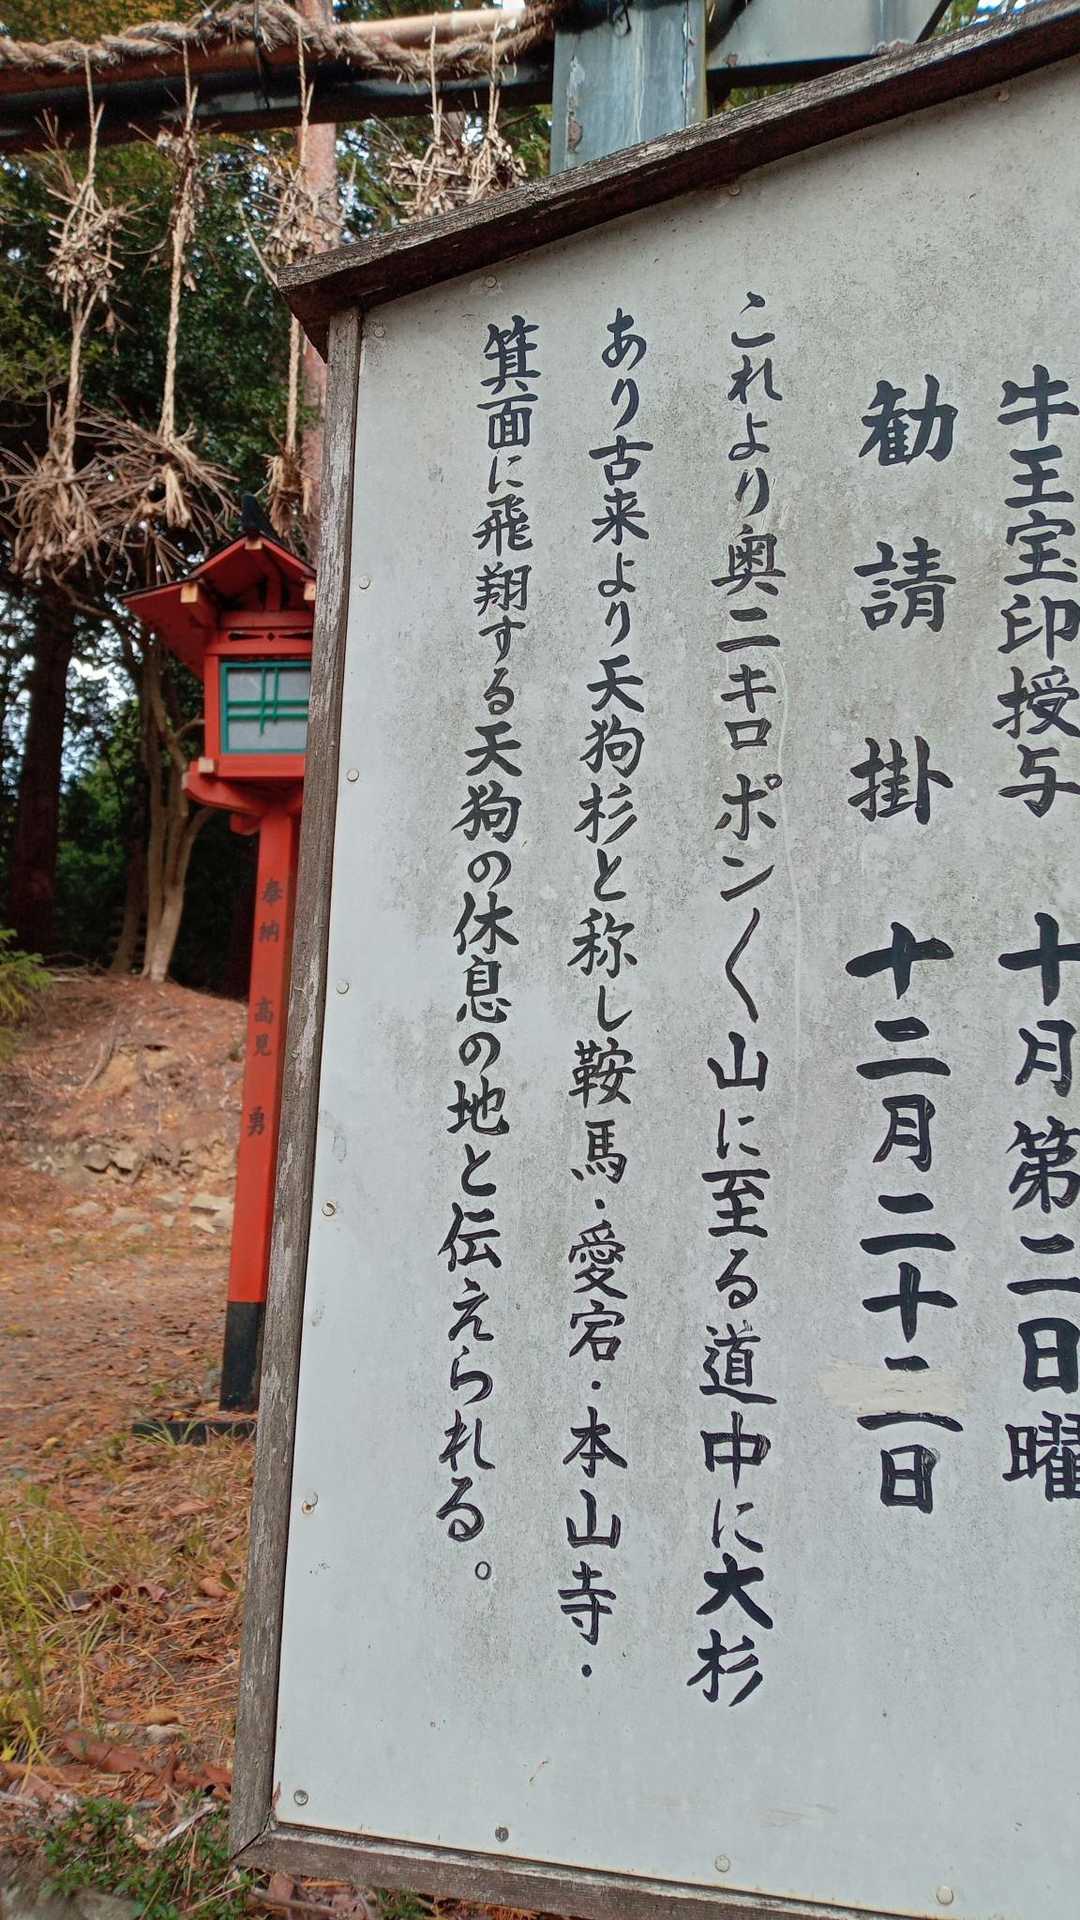 牛王宝印授与　十月第二日曜
勧請掛　十二月二十二日
これより奥二キロポン〱山に至る道中に大杉
あり古来より天狗杉と称し鞍馬・愛宕・本山寺・
箕面に飛翔する天狗の休息の地と伝えられる。
奉納　高見　勇